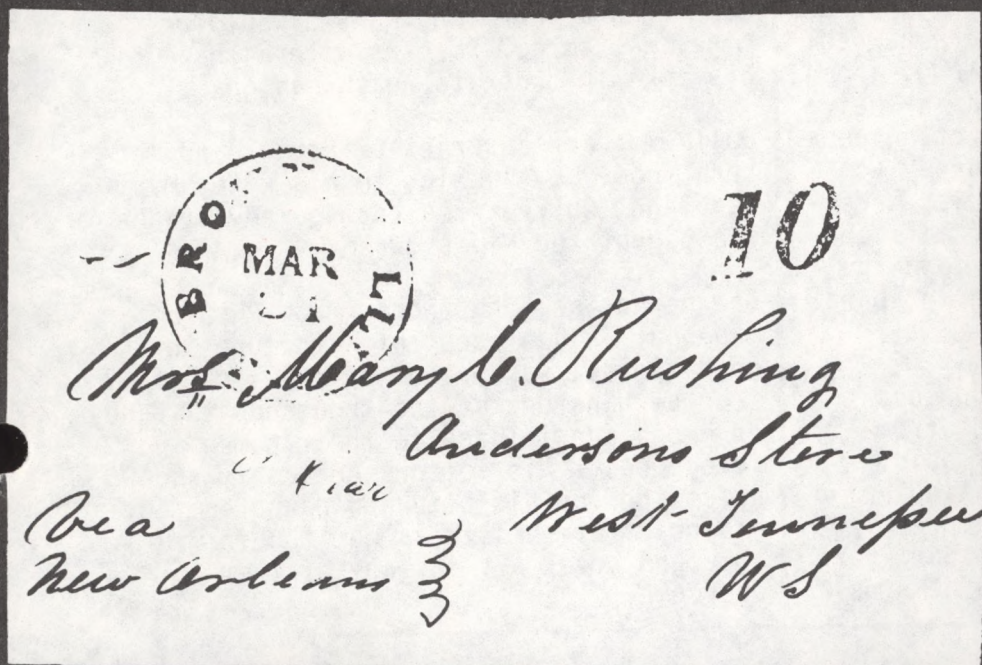 BRO
MAR
10
Mrs Mary C. Rushing
Andersons Store
West Tennessee
Via
New Orleans
W S